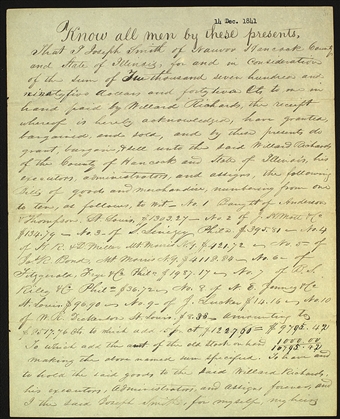 14 Dec. 1841
Know all men by these presents,
That I Joseph Smith of Nauvoo Hancock County
and State of Illinois, for and in Consideration
of the sum of Ten thousand seven hundred and
ninety five dollars and forty two Cts to me in
hand paid by Willard Richards, the receipt
whereof is hereby acknowledged, have granted,
bargained and sold, and by these presents do
grant, bargain, & sell unto the said Willard Richards
of the County of Hancock and State of Illinois, his
executors, administrators, and assigns, the following
Bills of goods and merchandise, numbering from one
to ten, as follows, to wit No. 1 Bought of Anderson
& Thompson. St. Louis, No. 2 of
No. 3 of Phila No. 4
of No. 5 of
No. 6 of
Phila No. 7 of
Riley & C Phila No. 8 of
St. Louis No. 9 of No. 10
of St. Louis Amounting to
to which add
To which add the amt of the old stock on hand 1000.00
making the above named sum specified. To have and
to hold the said goods to the said Willard Richards,
his executors, administrators, and assigns forever, and
I the said Joseph Smith, for myself, my heirs